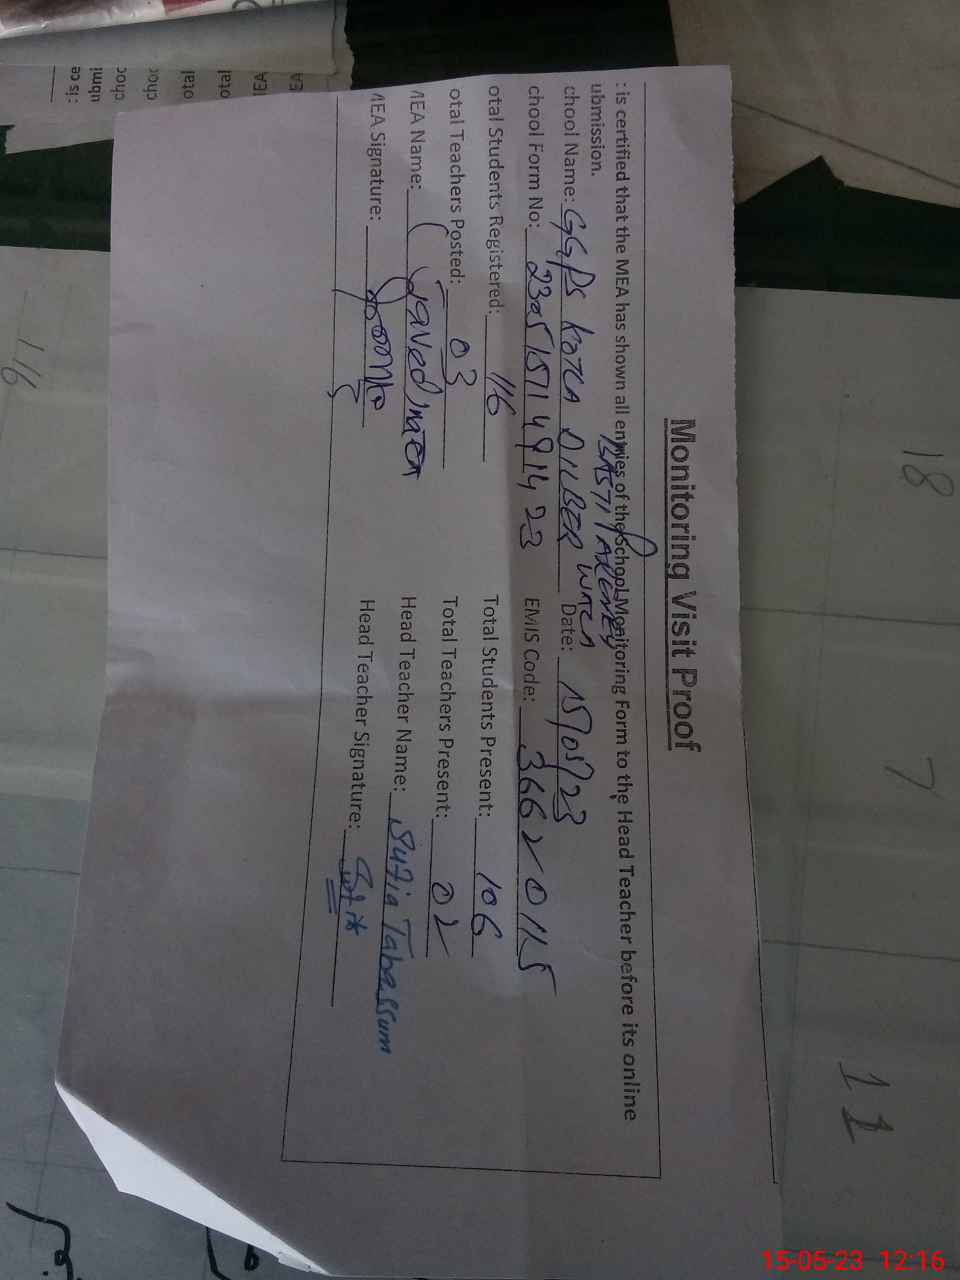 Monitoring Visit Proof
: is certified that the MEA has shown all entries of the School Monitoring Form to the Head Teacher before its online
ubmission.
BASTI
chool Name: GGPS KOTLA DILBER WALA Date: 15/05/23
chool Form No: EMIS Code: 36620115
otal Students Registered: 116 Total Students Present: 106
otal Teachers Posted: 03 Total Teachers Present: 02
MEA Name: Javed Head Teacher Name: Sufia Tabassum
MEA Signature: Head Teacher Signature:
18
7
11
116
15-05-23 12:16